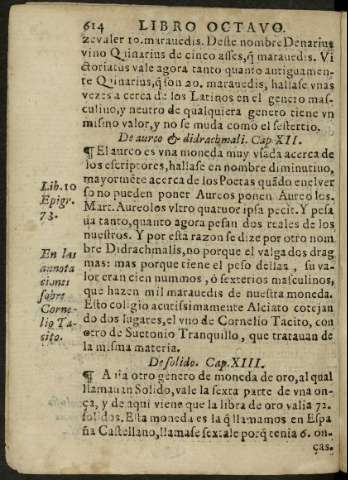 614 LIBRO OCTAVO.
zevaler 10. marauedis. Deste nombre Denarius
vino Quinarius de cinco asses, q̃ marauedis. Vi
ctoriatus vale agora tanto quanto antiguamen-
te Quinarius, q̃ son 20. marauedis, hallase vnas
vezes a cerca de los Latinos en el genero mas-
culino, y neutro de qualquiera genero tiene vn
mismo valor, y no se muda como el sestertio.
De aureo & didrachmali. Cap XII.
¶ El aureo es vna moneda muy vsada acerca de
los escriptores, hallase en nombre diminutiuo,
mayormẽte acerca de los Poetas quãdo enel ver
so no pueden poner Aureos ponen Aureolos.
Lib. 10
Epigr.
73.
Mart. Aureolos vltro quatuor ipsa petit. Y pesa
ua tanto, quanto agora pesan dos reales de los
nuestros. Y por esta razon se dize por otro nom
bre Didrachmalis, no porque el valga dos drag
mas: mas porque tiene el peso dellas, su va-
lor eran cien nummos, ó sexterios masculinos,
que hazen mil marauedis de nuestra moneda.
Esto coligio acutissimamente Alciato cotejan
do dos lugares, el vno de Cornelio Tacito, con
otro de Suetonio Tranquillo, que tratauan de
la misma materia.
En las
annota
ciones
sobre
Corne-
lio Ta-
cito.
De solido. Cap. XIII.
¶ Auia otro genero de moneda de oro, al qual
llamauan Solido, vale la sexta parte de vna on-
ça, y de aqui viene que la libra de oro valia 72.
solidos. Esta moneda es la q̃ llamamos en Espa
ña Castellano, llamase sextale porq̃ tenia 6. on-
ças.